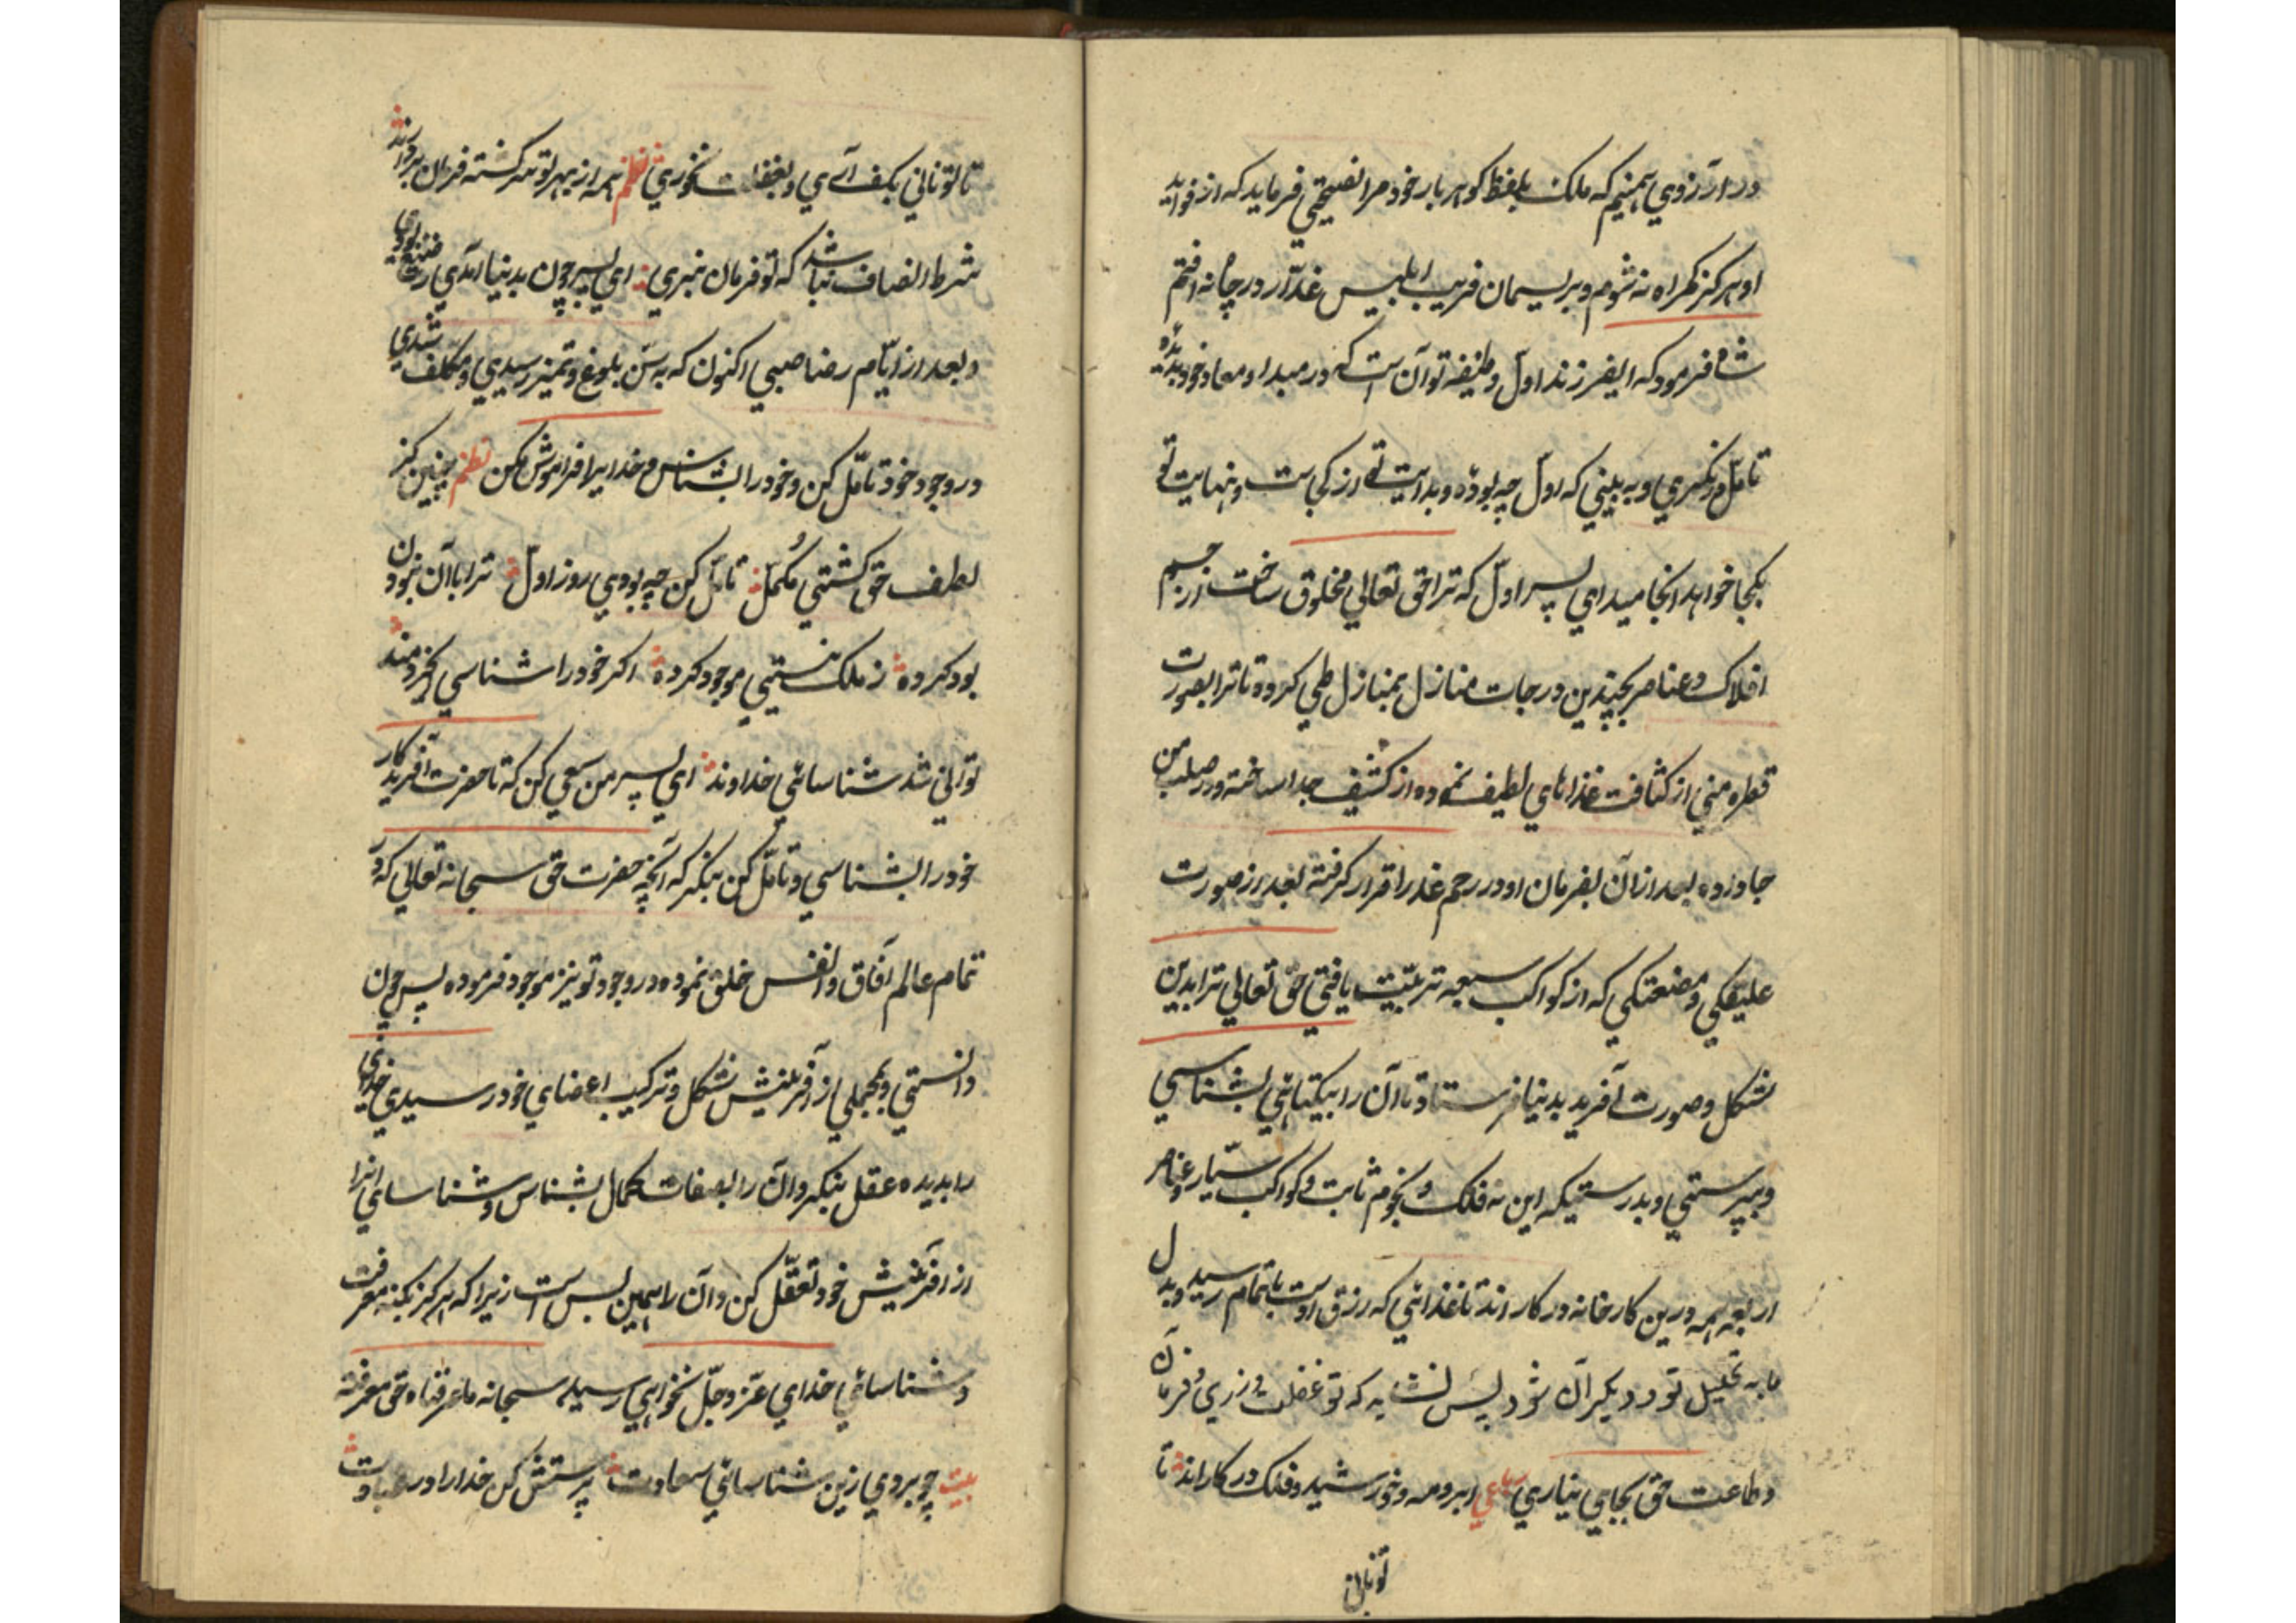 در آرزوی همینیم که ملک بلفظ گوهر بار خود مرا نصیحتی فرماید که از فواید
او هرگز گمراه نه شوم و بریسمان فریب ابلیس غدّار در چاه نه افتم
شاه فرمود که ایفرزند اول وظیفه تو آن است که در مبدا و معاد خود بدیدهٔ
تامّل در نگری و به بینی که اول چه بودهٔ و بدایت تو از کجاست و نهایت تو
بکجا خواهد انجامید ای پسر اوّل که ترا حق تعالی مخلوق ساخت از جسم
افلاک و عناصر بچندین درجات منازل بمنازل طی کرده تا ترا بصورت
قطره منی از کثافت غذاهای لطیف نموده از کثیف جدا ساخته و در صلب من
جا داده بعد ازان بفرمان او در رحم عذرا قرار گرفته بعد از صورت
علیقگی و مضعتگی که از کواکب سبعه تربیّت یافتی حق تعالی ترا بدین
شکل و صورت آفرید بدنیا فرستاد تا آن را بیکتائی بشناسی
و بپرستی و بدرستیکه این نه فلک و نجوم ثابت و کواکب سیّار و عناصر
اربعه همه درین کارخانه در کار اند تا غذائی که رزق اوست باتمام رسید و بدل
ما به تحلیل تو و دیگر آن شود پس نشاید که تو غفلت ورزی و فرمان آن
و طاعت حق بجای نیاری رباعی ابر و مه و خورشید و فلک در کار اند تا
تو نانی
تا تو نانی بکف آری و بغفلت نخوری نظم همه از بهر تو سرگشته فرمان بردار اند
شرط انصاف نباشد که تو فرمان نبری ای پسر چون بدنیا آمدی رضیع بودی
و بعد از ایّام رضا صبی اکنون که به سن بلوغ و تمیز رسیدی و مکلف شدی
در وجود خود تامّل کن و خود را بشناس و خدایرا فراموش مکن نظم چنین کز
لطف حق گشتی مکمّل تامّل کن چه بودی روز اوّل ترا با آن نبودن
بود کرده ز ملک نیستی موجود کرده اگر خود را شناسی ای خردمند
توانی شد شناسائی خداوند ای پسر من سعی کن که تا حضرت آفریدگار
خود را بشناسی و تامّل کن بنگر که آنچه حضرت حق سبحانه تعالی که در
تمام عالم آفاق و انفس خلق نموده در وجود تو نیز موجود فرموده پس چون
دانستی و بمجملی از آفرینش شکل و ترکیب اعضای خود رسیدی خدای
را بدیده عقل بنگر و آن را بصفات کمال بشناس و شناسای آنرا
از آفرینش خود تعقّل کن و آن را همین بس است زیرا که هرگز بکنه معرفت
و شناسائی خدای عزّ و جلّ نخواهی رسید سبحانه ما عرفناه حق معرفته
بیت چو بردی ازین شناسائی سعادت پرستش کن خدا را در عبادت